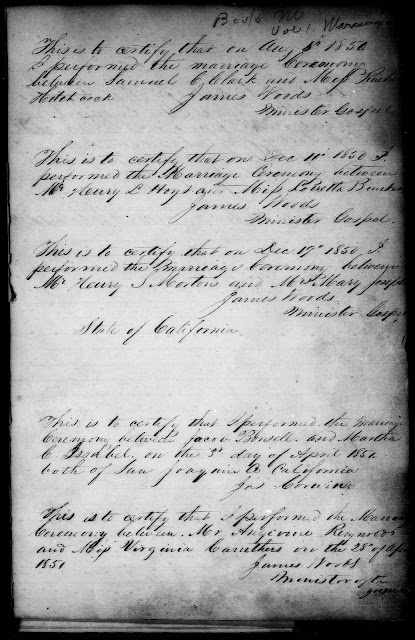 Book M
Vol 1. Marriages
This is to certify that on Aug 8th 1850
I performed the marriage Ceremony
between Samuel C Clark and Miss
Hotchcock James Woods
Minister Gospel
This is to certify that on Dec 11th 1850 I
performed the Marriage Ceremony between
Mr Henry L Hoyt and Miss Loretta
James Woods
Minister Gospel.
This is to certify that on Dec 19th 1850 I
performed the Marriage Ceremony between
Mr Henry S Morton and Mrs Mary Joseph
James Woods
Minister Gospel
State of California
This is to certify that I performed the Marriage
Ceremony between Jacob Bonsell and Martha
C Isabel, on the 3d day of April 1851
both of San Joaquin Co California
Jas Corwine
This is to certify that I performed the Marriage
Ceremony between Mr Reynolds
and Miss Virginia Caruthers on the 28th of
1851 James Woods
Minister of the
gospel